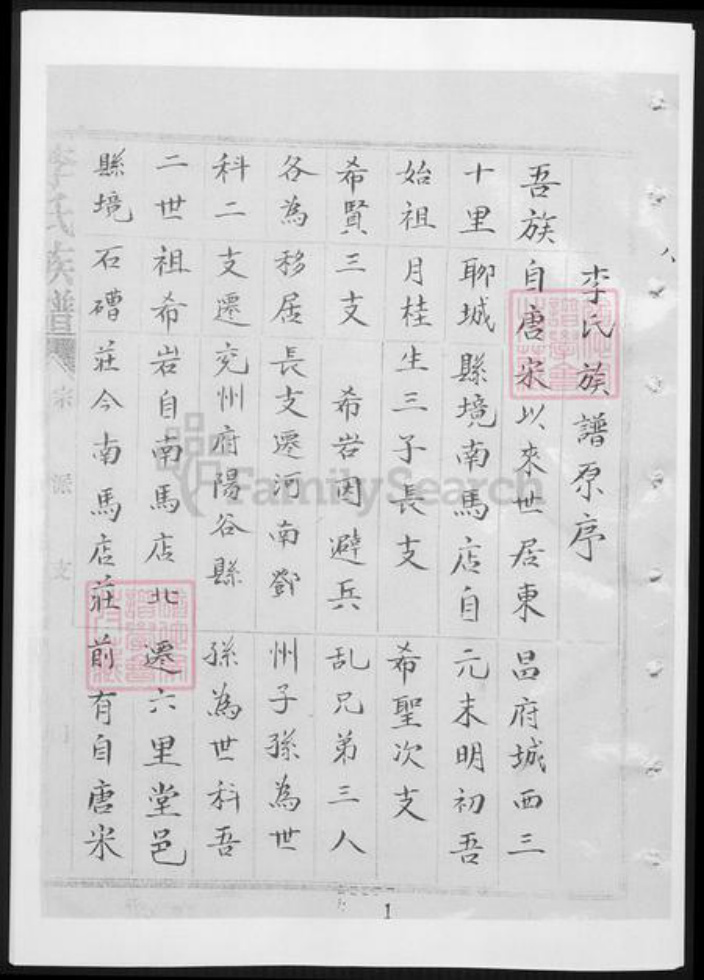 李氏族譜原序
吾族自唐宋以來世居東昌府城西三
十里聊城縣境南馬店自元末明初吾
始祖月桂生三子長支希聖次支
希賢三支希岩因避兵乱兄弟三人
各為移居長支遷河南鄧州子孫為世
科二支遷兖州府陽谷縣孫為世科吾
二世祖希岩自南馬店北遷六里堂邑
縣境石磄莊今南馬店莊前有自唐宋
李氏族譜
宗派支
FamilySearch
1